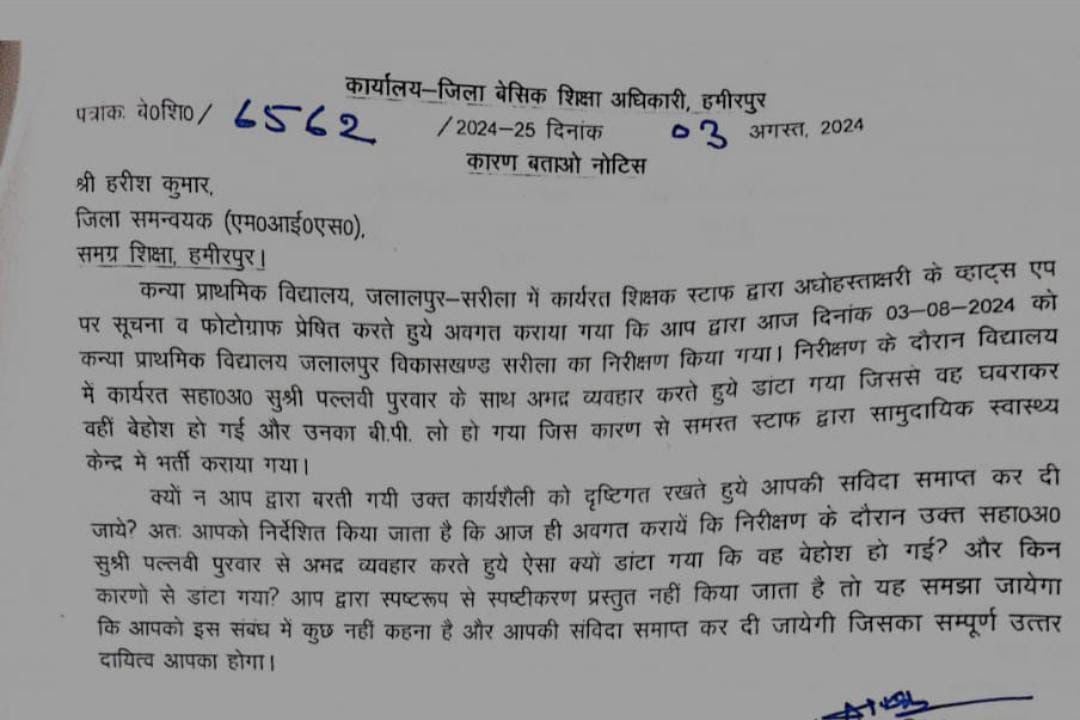 कार्यालय–जिला बेसिक शिक्षा अधिकारी, हमीरपुर
पत्रांक: बे०शि० / 6562 /2024–25 दिनांक 03 अगस्त, 2024
कारण बताओ नोटिस
श्री हरीश कुमार,
जिला समन्वयक (एम०आई०एस०),
समग्र शिक्षा, हमीरपुर।
कन्या प्राथमिक विद्यालय, जलालपुर–सरीला में कार्यरत शिक्षक स्टाफ द्वारा अधोहस्ताक्षरी के व्हाट्स एप
पर सूचना व फोटोग्राफ प्रेषित करते हुये अवगत कराया गया कि आप द्वारा आज दिनांक 03–08–2024 को
कन्या प्राथमिक विद्यालय जलालपुर विकासखण्ड सरीला का निरीक्षण किया गया। निरीक्षण के दौरान विद्यालय
में कार्यरत सहा०अ० सुश्री पल्लवी पुरवार के साथ अभद्र व्यवहार करते हुये डांटा गया जिससे वह घबराकर
वहीं बेहोश हो गई और उनका बी.पी. लो हो गया जिस कारण से समस्त स्टाफ द्वारा सामुदायिक स्वास्थ्य
केन्द्र में भर्ती कराया गया।
क्यों न आप द्वारा बरती गयी उक्त कार्यशैली को दृष्टिगत रखते हुये आपकी संविदा समाप्त कर दी
जाये? अतः आपको निर्देशित किया जाता है कि आज ही अवगत करायें कि निरीक्षण के दौरान उक्त सहा०अ०
सुश्री पल्लवी पुरवार से अभद्र व्यवहार करते हुये ऐसा क्यों डांटा गया कि वह बेहोश हो गई? और किन
कारणो से डांटा गया? आप द्वारा स्पष्टरूप से स्पष्टीकरण प्रस्तुत नहीं किया जाता है तो यह समझा जायेगा
कि आपको इस संबंध में कुछ नहीं कहना है और आपकी संविदा समाप्त कर दी जायेगी जिसका सम्पूर्ण उत्तर
दायित्व आपका होगा।